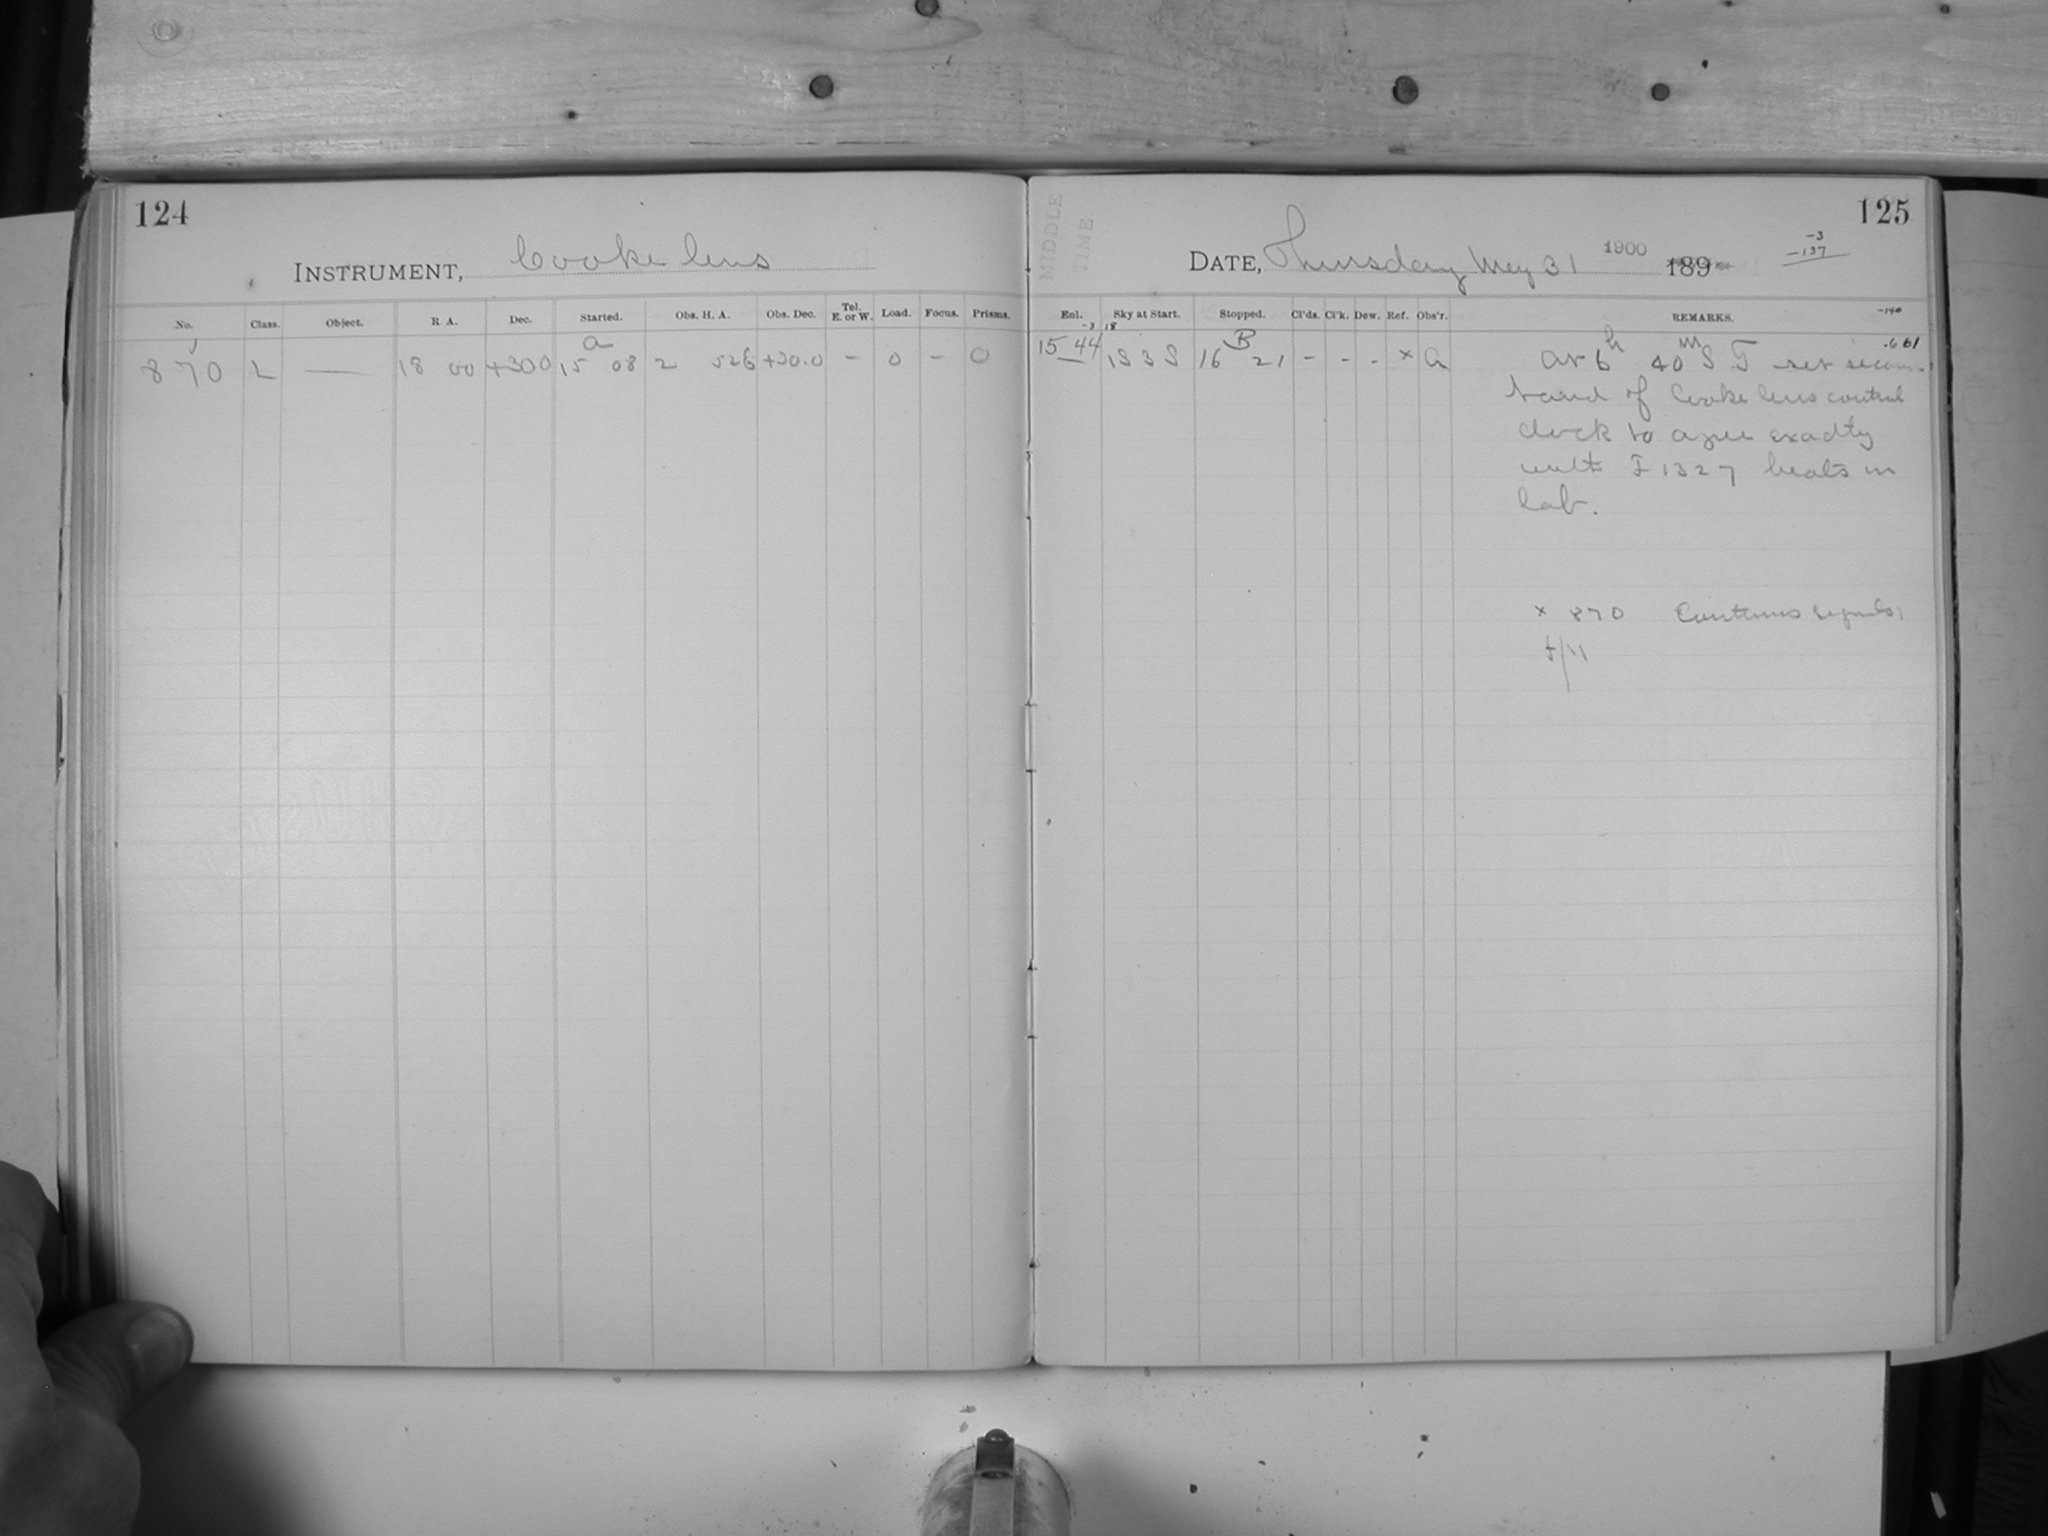 124
INSTRUMENT, Cooke lens
No. Class. Object. R A. Dec. Started. Obs. H. A. Obs. Dec. Tel. E. or W. Load. Focus. Prisms.
a
870 L — 18 00 +300 15 08 2 526 +30.0 - 0 - 0
MIDDLE
TIME
125
DATE, Thursday May 31 1900 189
-3
-137
Enl. Sky at Start. Stopped. Cl'ds. Cl'k. Dew. Ref. Obs'r. REMARKS.
-140
-3 18
B
.661
15 44 1S 3 S 16 21 - - - × a At 6h 40m S T set
hand of Cooke lens control
clock to agree exactly
with F 1327 beats in
lab.
× 870 Contains signals,